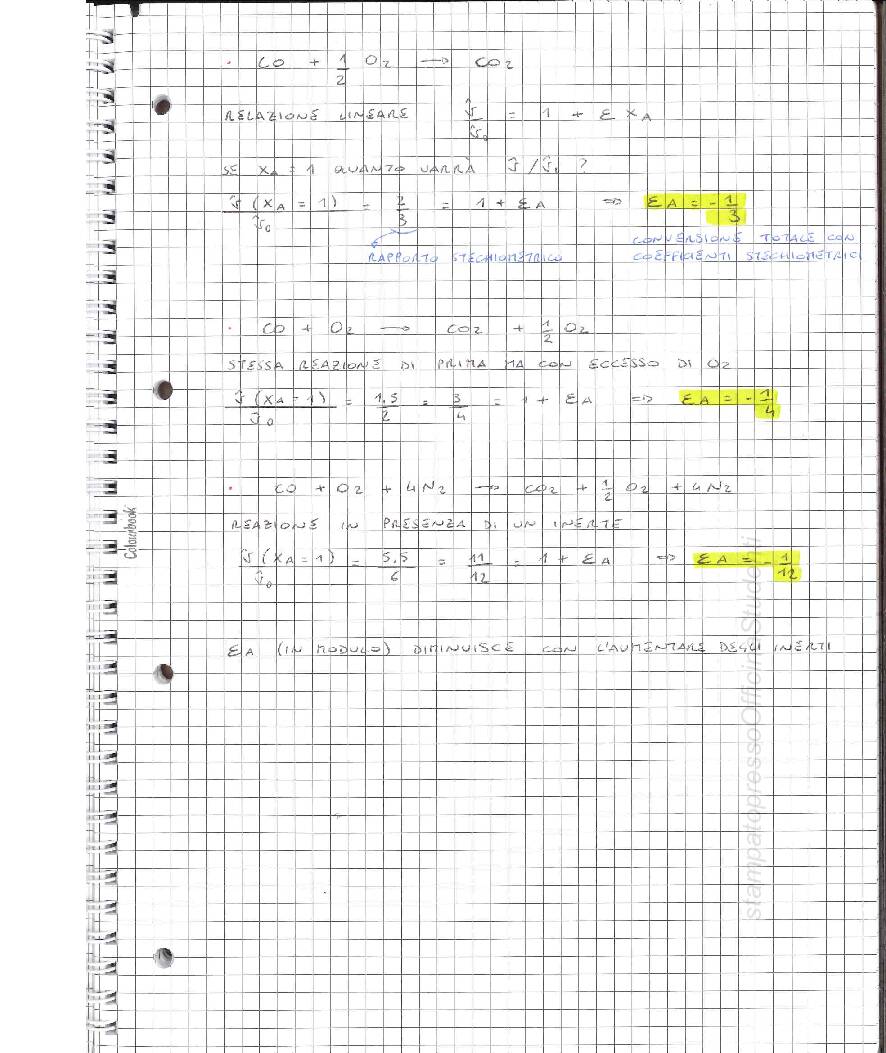 · CO + 1/2 O2 → CO2
RELAZIONE LINEARE v̂/v̂0 = 1 + ε XA
SE XA = 1 QUANTO VARRÀ v̂/v̂0 ?
v̂ (XA = 1)/v̂0 = 2/3 = 1 + εA ⇒ εA = -1/3
RAPPORTO STECHIOMETRICO
CONVERSIONE TOTALE CON
COEFFICIENTI STECHIOMETRICI
· CO + O2 → CO2 + 1/2 O2
STESSA REAZIONE DI PRIMA MA CON ECCESSO DI O2
v̂ (XA = 1)/v̂0 = 1,5/2 = 3/4 = 1 + εA ⇒ εA = -1/4
· CO + O2 + 4N2 → CO2 + 1/2 O2 + 4N2
REAZIONE IN PRESENZA DI UN INERTE
v̂ (XA = 1)/v̂0 = 5,5/6 = 11/12 = 1 + εA ⇒ εA = -1/12
εA (IN MODULO) DIMINUISCE CON L'AUMENTARE DEGLI INERTI
Colourbook
stampatopressoOfficinaStudenti